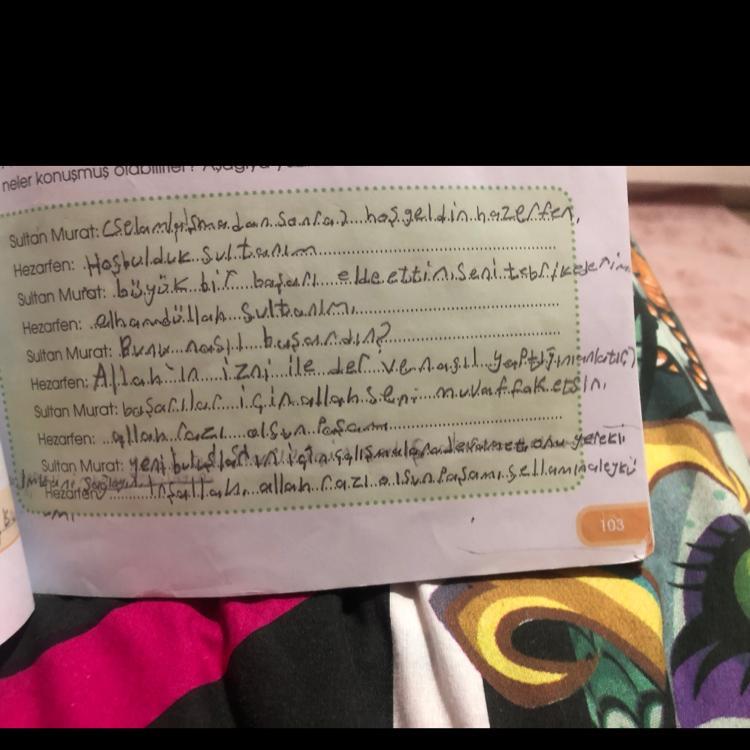 neler konuşmuş olabilirler? Aşağıya
Sultan Murat: (Selamlaşmadan sonra) hoşgeldin hazerfen,
Hezarfen: Hoşbulduk sultanım
Sultan Murat: büyük bir başarı elde ettin seni tebrik ederim
Hezarfen: elhamdüllah sultanım
Sultan Murat: Bunu nasıl başardın?
Hezarfen: Allah'ın izni ile der ve nasıl yaptığını anlatır)
Sultan Murat: başarılar için allah seni muvaffak etsin,
Hezarfen: allah razı olsun Paşam
Sultan Murat: yeni buluşların için çalışmalara devam et onu gerekli
imkanı
Hezarfen: İnşallah allah razı olsun Paşamı sellamınaleykü
-m,
103